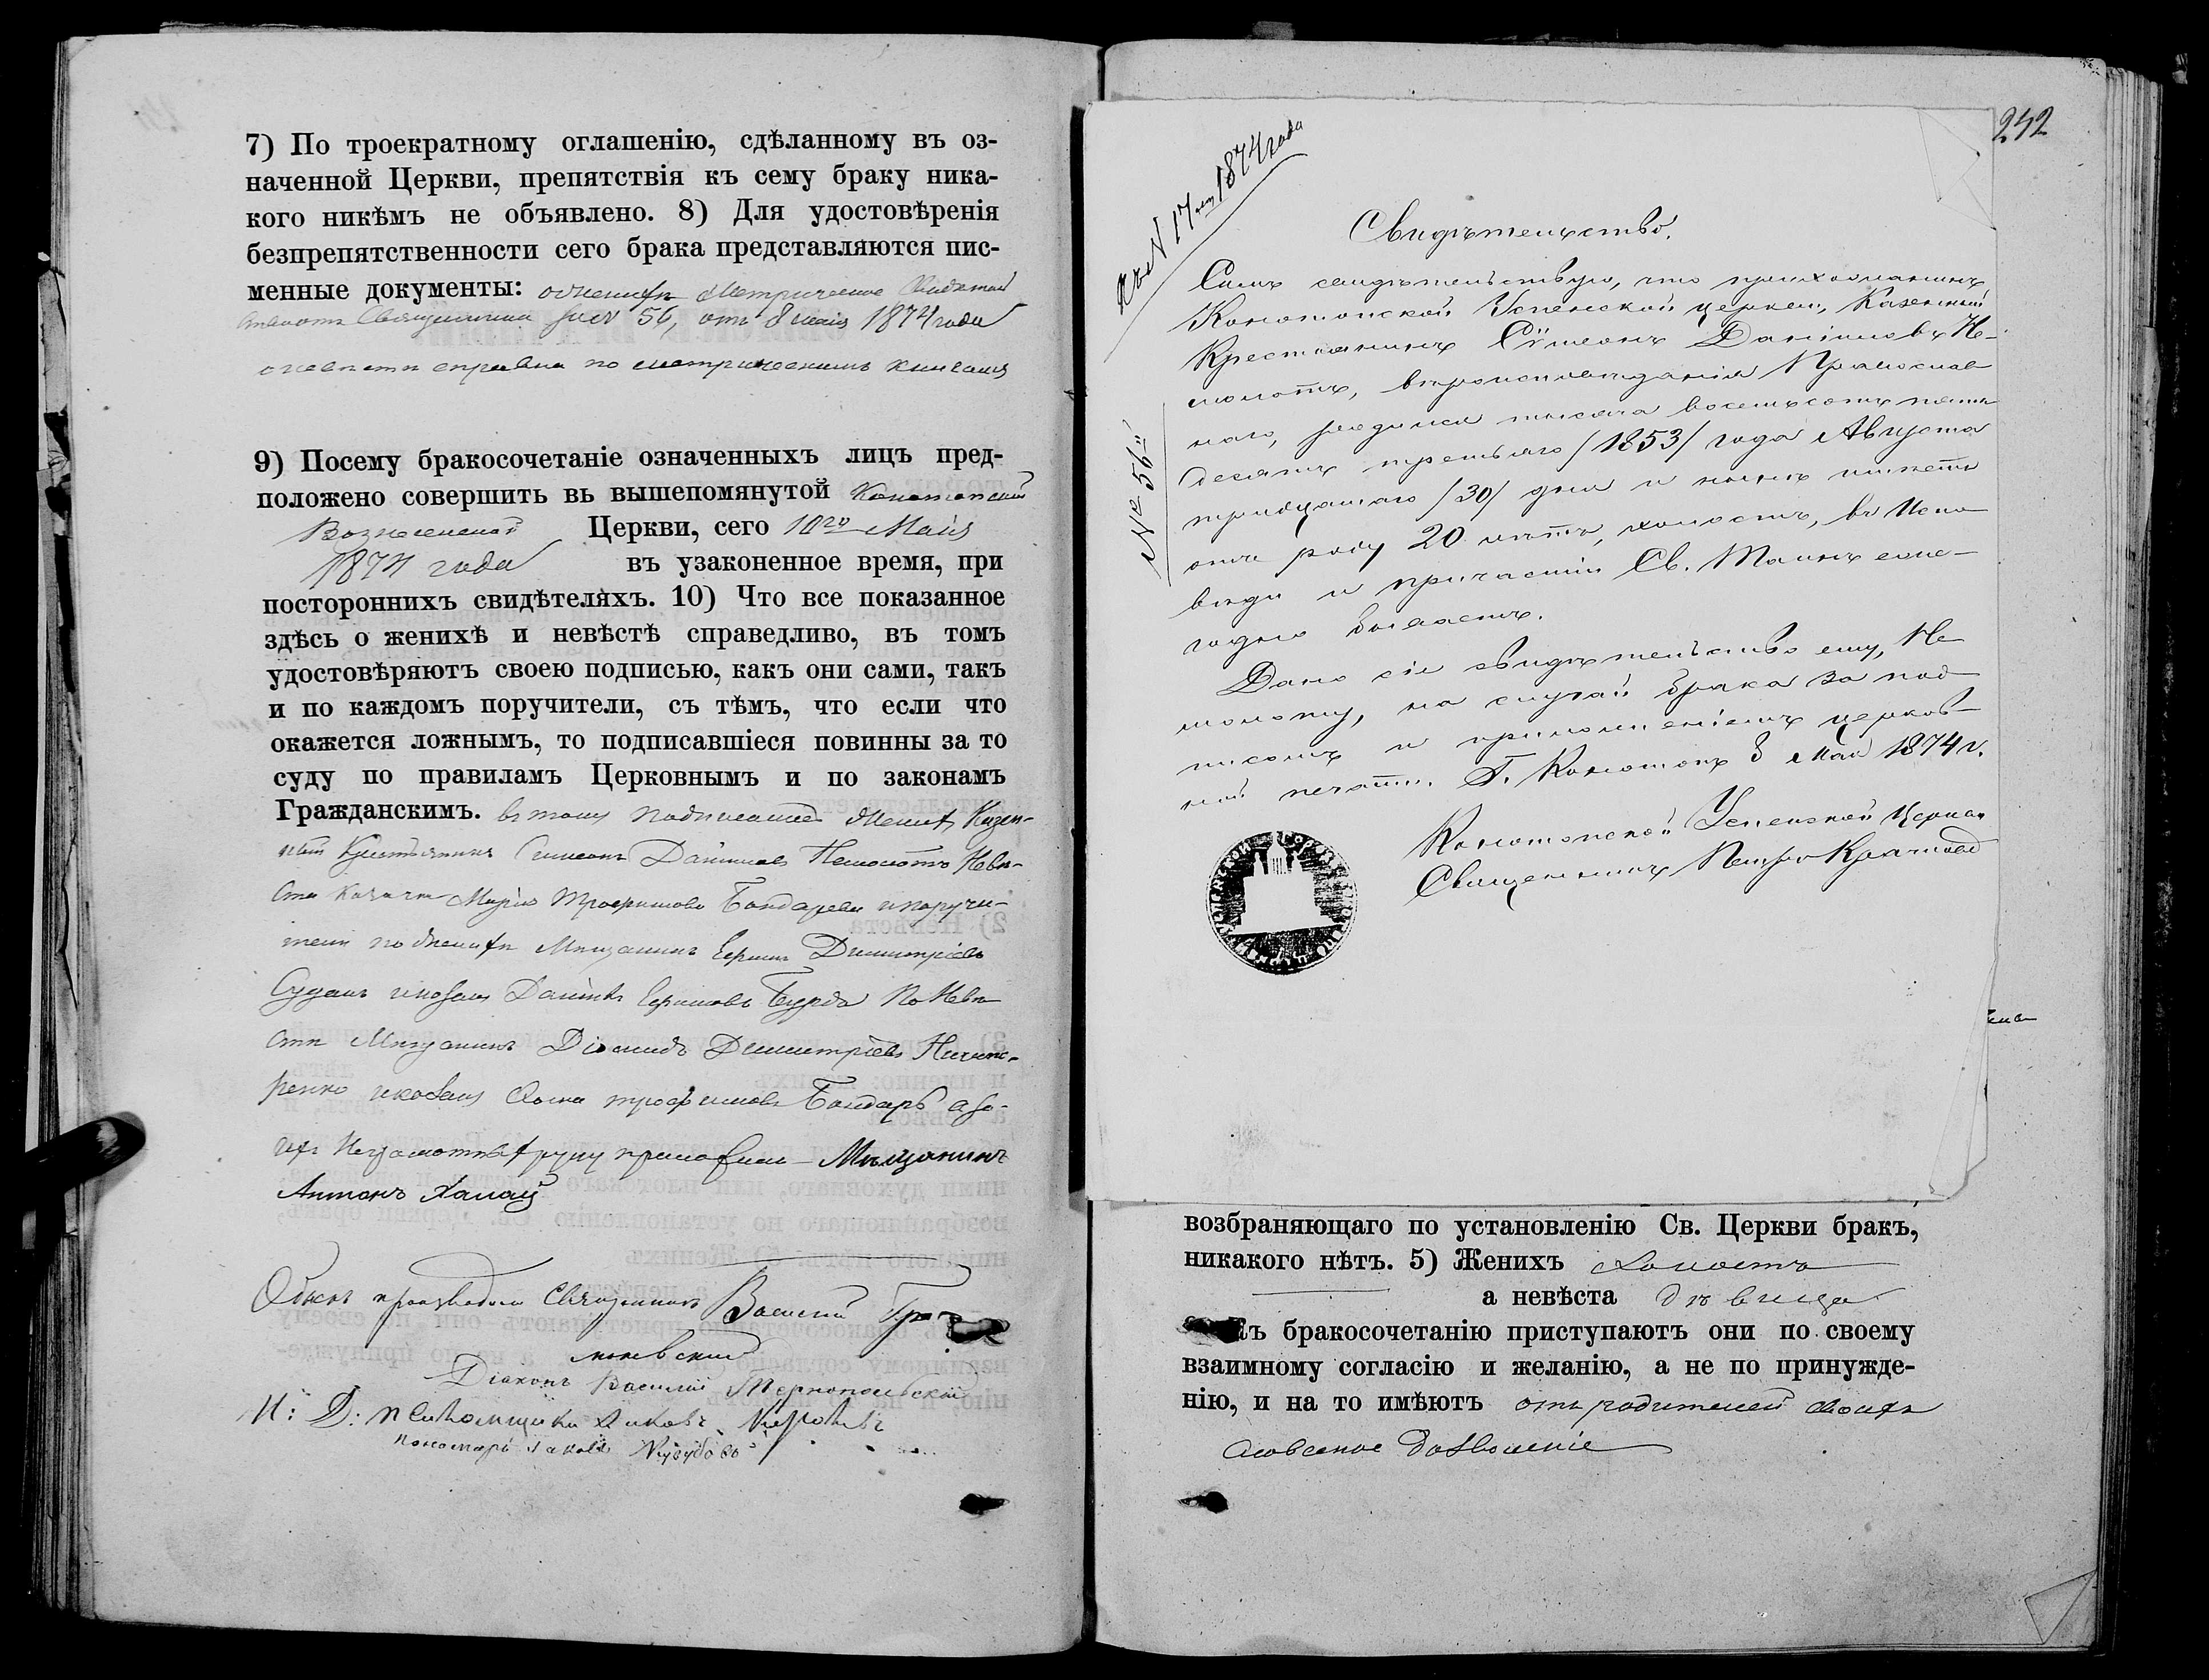 7) По троекратному оглашенію, сдѣланному въ оз-
наченной Церкви, препятствія къ сему браку ника-
кого никѣмъ не объявлено. 8) Для удостовѣренія
безпрепятственности сего брака представляются пис-
менные документы: о женихѣ Метрическое Свидѣтель
Священника за № 56, отъ 8 маія 1874 года
о невѣсте справка по метрическимъ книгамъ
9) Посему бракосочетаніе означенныхъ лицъ пред-
положено совершить вь вышепомянутой Конотопской
Вознесенской Церкви, сего 10го Маія
1874 года въ узаконенное время, при
постороннихъ свидѣтеляхъ. 10) Что все показанное
здѣсь о женихѣ и невѣстѣ справедливо, въ томъ
удостовѣряютъ своею подписью, какъ они сами, такъ
и по каждомъ поручители, съ тѣмъ, что если что
окажется ложнымъ, то подписавшіеся повинны за то
суду по правиламъ Церковнымъ и по законамъ
Гражданскимъ. въ томъ подписались Женихъ Казен-
ный Крестьянинъ Симеонъ Даніиловъ Немолотъ Невѣ-
ста козачка Марія Трофимова Бондарева и поручи-
тели по женихѣ Мещанинъ Ефимъ Димитріевъ
Суданъ и козакъ Даніилъ Ефимовъ Бурда По Невѣ-
сти Мещанинъ Діомидъ Димитріевъ Ничипо-
ренко и козакъ Фома Трофимовъ Бондарь а за
ихъ Неграмотныхъ руку приложилъ Мѣщанинъ
Антонъ Халац
Обыскъ производилъ Священникъ Василій
Діаконъ Василій Тернопольскій
И: Д: Псаломщика
пономарь Іаковъ
242
Къ № 17му 1874 года
№ 56й
Свидѣтельство.
Симъ свидѣтельствую, что прихожанинъ
Конотопской Успенской церкви, Казенный
Крестьянинъ Сѵмеонъ Даніиловъ Не-
молотъ, вѣроисповѣданія Православ
наго, родился тысяча восемьсотъ пять
десятъ третьяго /1853/ года Августа
тридцатаго /30/ дня и нынѣ имѣетъ
отъ роду 20 лѣтъ, холостъ, въ Испо
вѣди и причастіи Св. Таинъ еже-
годно бываетъ.
Дано сіе свидѣтельство ему, Не
молоту, на случай брака за под
писомъ и приложеніемъ церков-
ной печати. Г. Конотопъ 8 Мая 1874 г.
Конотопской Успенской Церкви
Священникъ Петръ
возбраняющаго по установленію Св. Церкви бракъ,
никакого нѣтъ. 5) Женихъ холостъ
а невѣста дѣвица
къ бракосочетанію приступаютъ они по своему
взаимному согласію и желанію, а не по принужде-
нію, и на то имѣютъ отъ родителей своихъ
словесное дозволеніе